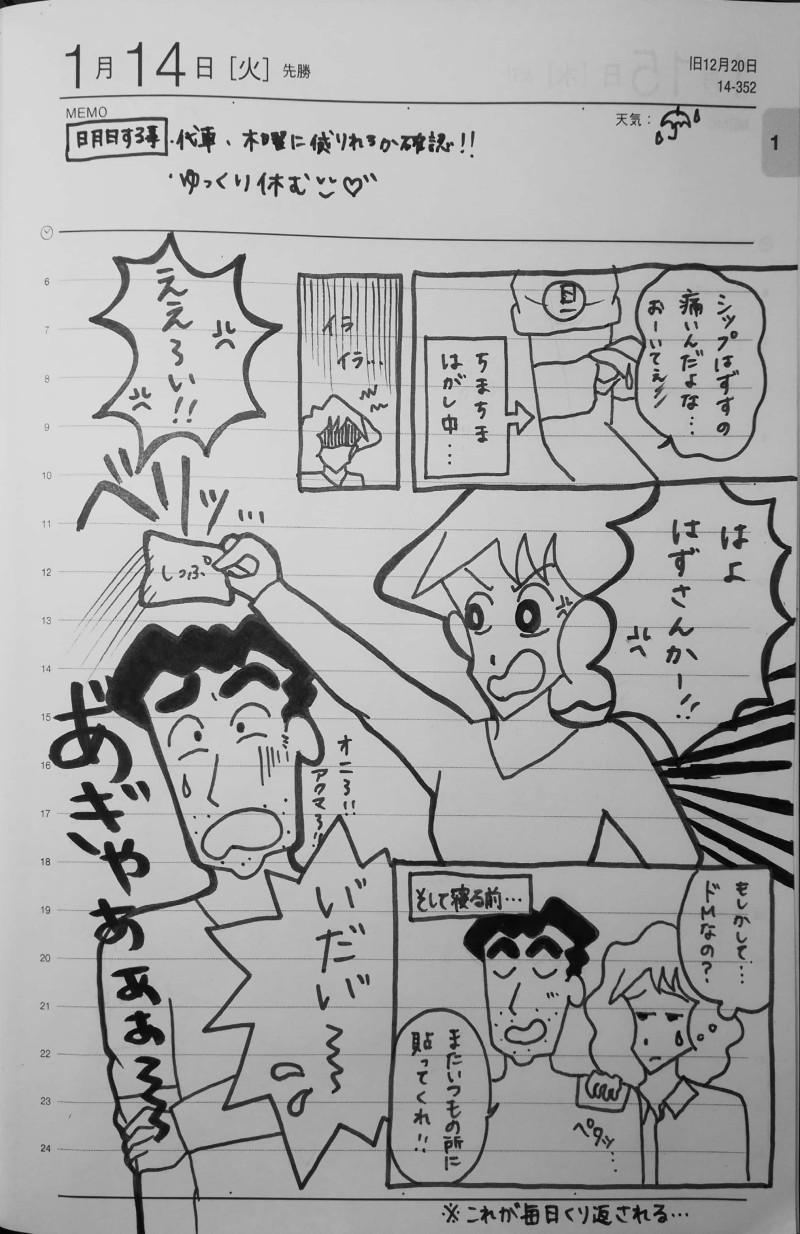 1月14日[火] 先勝
旧12月20日
14-352
MEMO
天気：
1
明日する事 ・代車、木曜に借りれるか確認!!
・ゆっくり休む♡
シップはずすの
痛いんだよな…
おーいてえ!!
ちまちま
はがし中…
イラ
イラ…
はよ
はずさんかー!!
ええろい!!
ベリッ…
しっぷ
オニろ!!
アクマろ!!
あ゛ぎゃあぁぁ
い゛だい゛
そして寝る前…
もしかして…
ドMなの?
またいつもの所に
貼ってくれ!!
ペタッ…
6
7
8
9
10
11
12
13
14
15
16
17
18
19
20
21
22
23
24
※これが毎日くり返される…